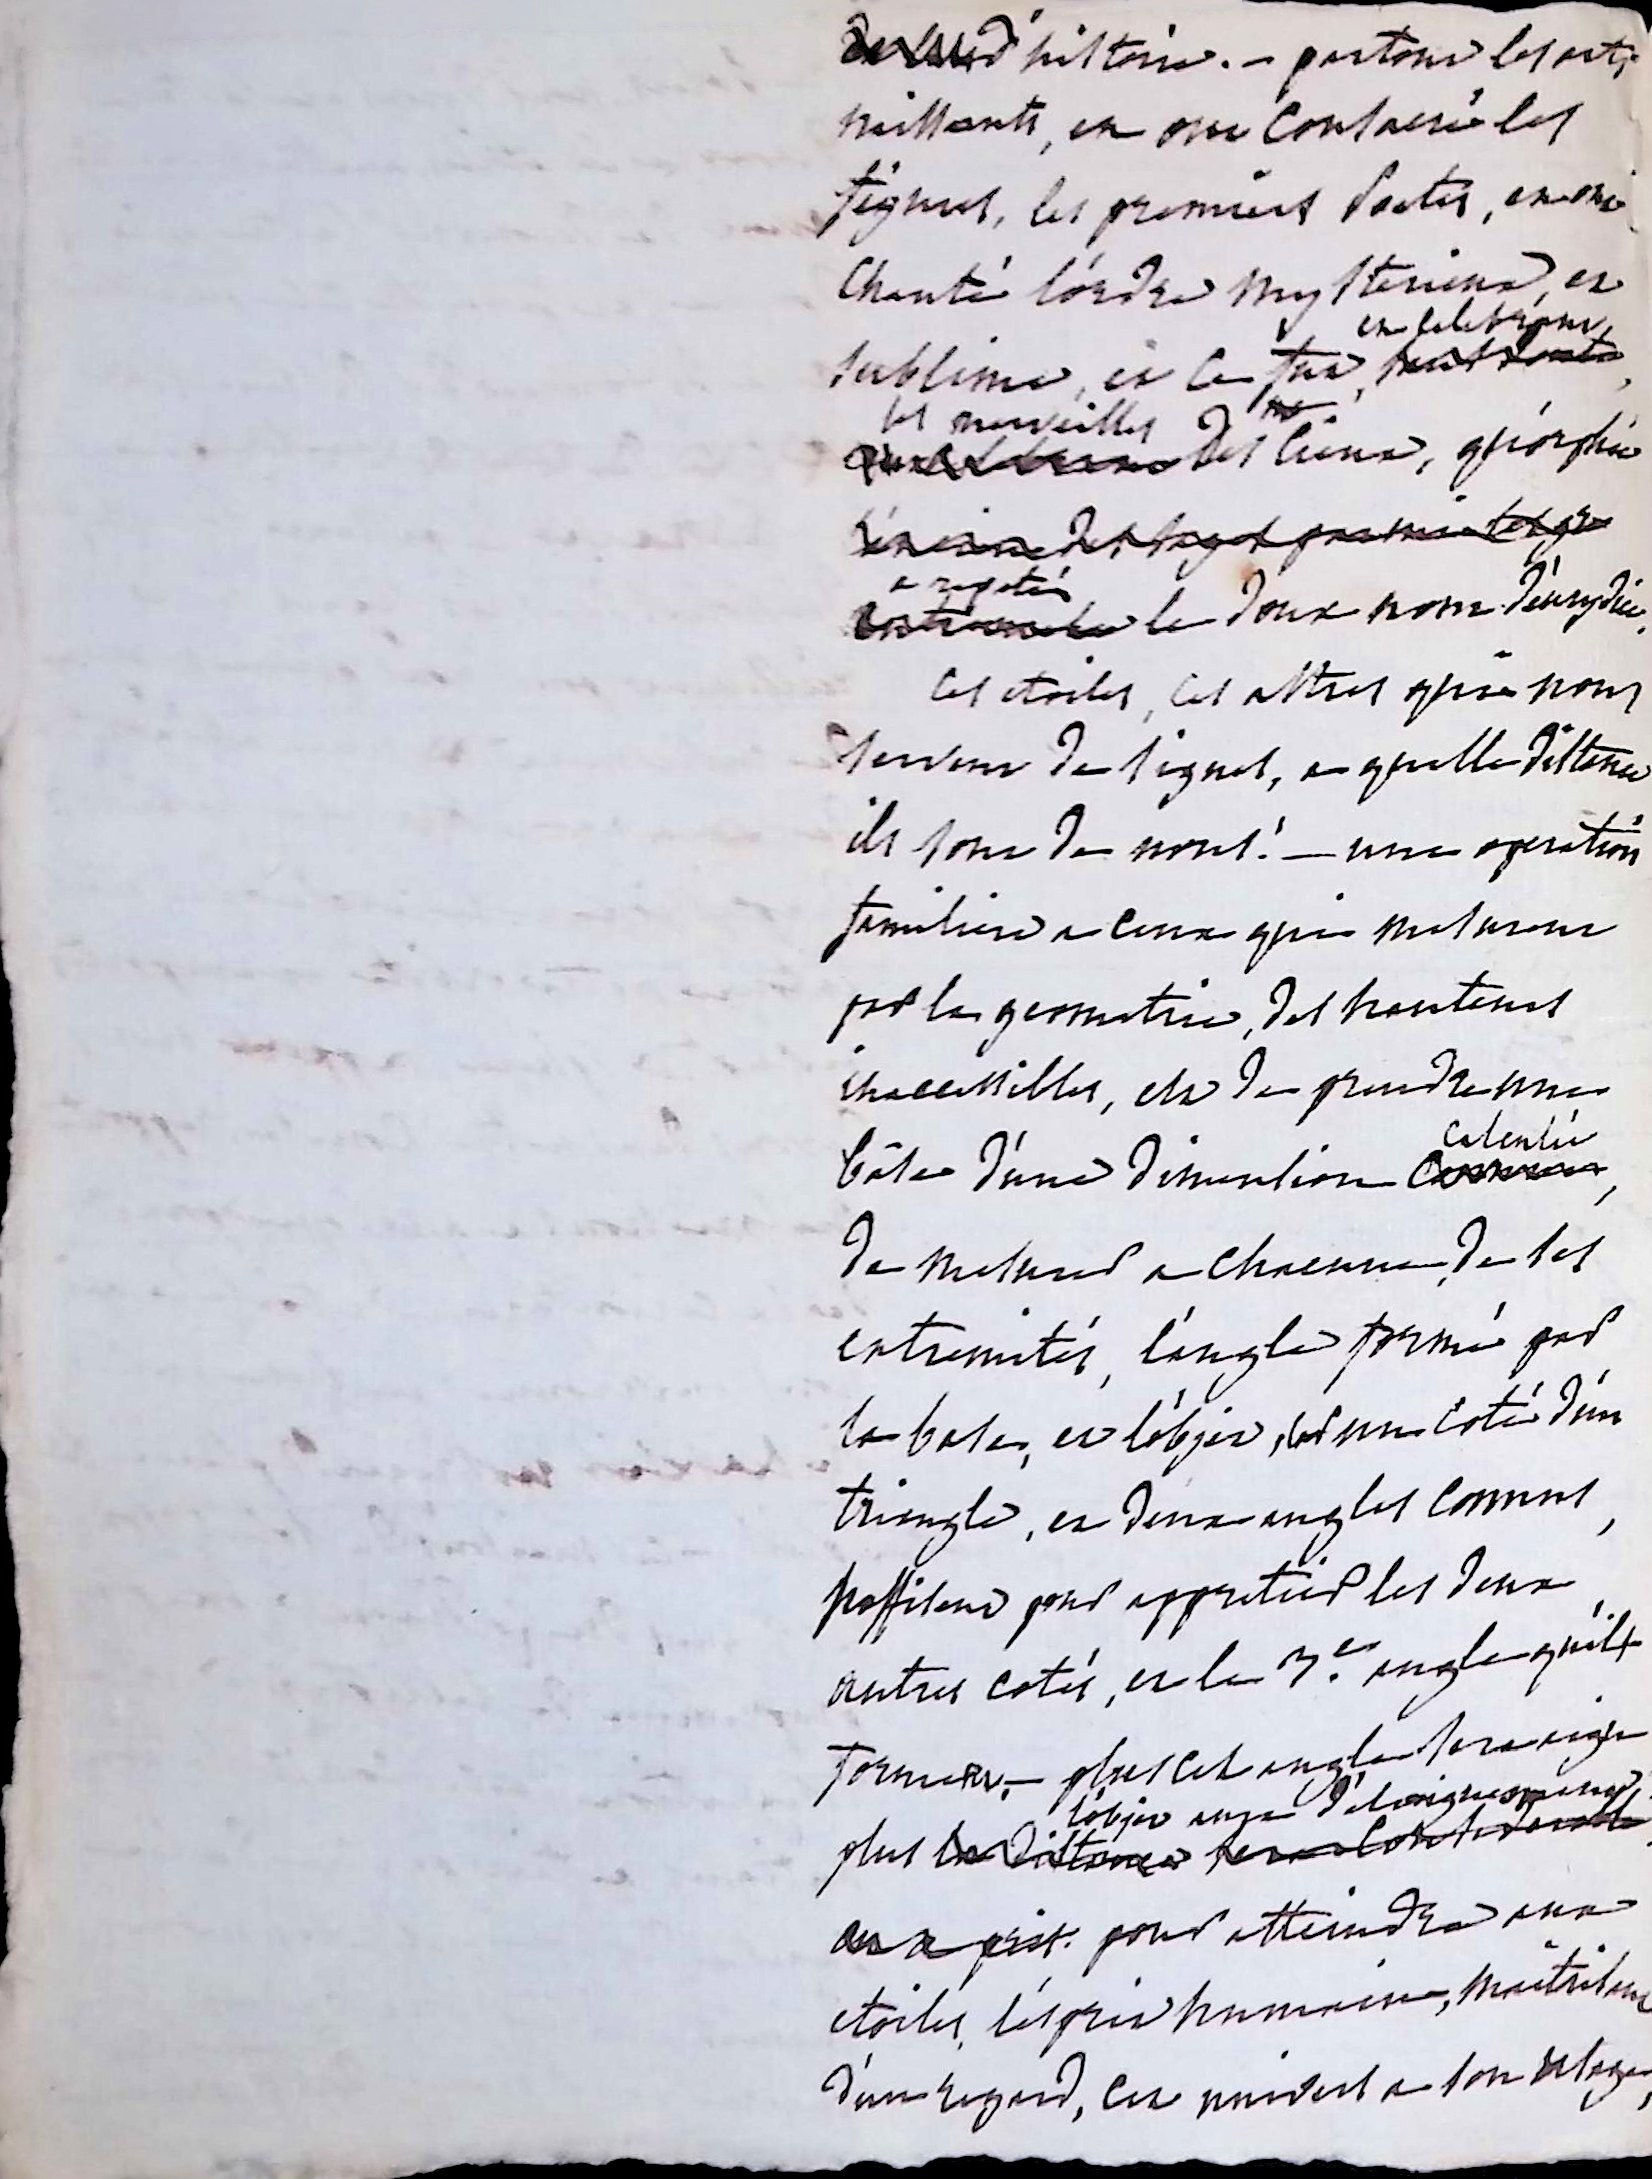 d'histoire. – partout les arts
naissants, en ont consacré les
signes, les premiers poetes, en ont
chanté l'ordre mysterieux, et
sublime, et ce fut, en celebrant
les merveilles des cieux, qu'orphée
a repeté le doux nom d'eurydice.
ces etoiles, ces astres qui nous
servent de signes, a quelle distance
ils sont de nous! – une operation
familiere a ceux qui mesurent
par la geometrie, des hauteurs
inaccessibles, est de prendre une
bâse d'une dimension calculée,
de mesurer a chacune, de ses
extremités, l'angle formé par
la base, et l'objet, un coté d'un
triangle, et deux angles connus,
suffisent pour appretier les deux
autres cotés, et le 3.e angle qu'ils
forment, – plus cet angle sera aigu
plus l'objet aura d'eloignement.
pour atteindre aux
etoiles, l'esprit humain, maitrisant
d'un regard, cet univers a son usage,